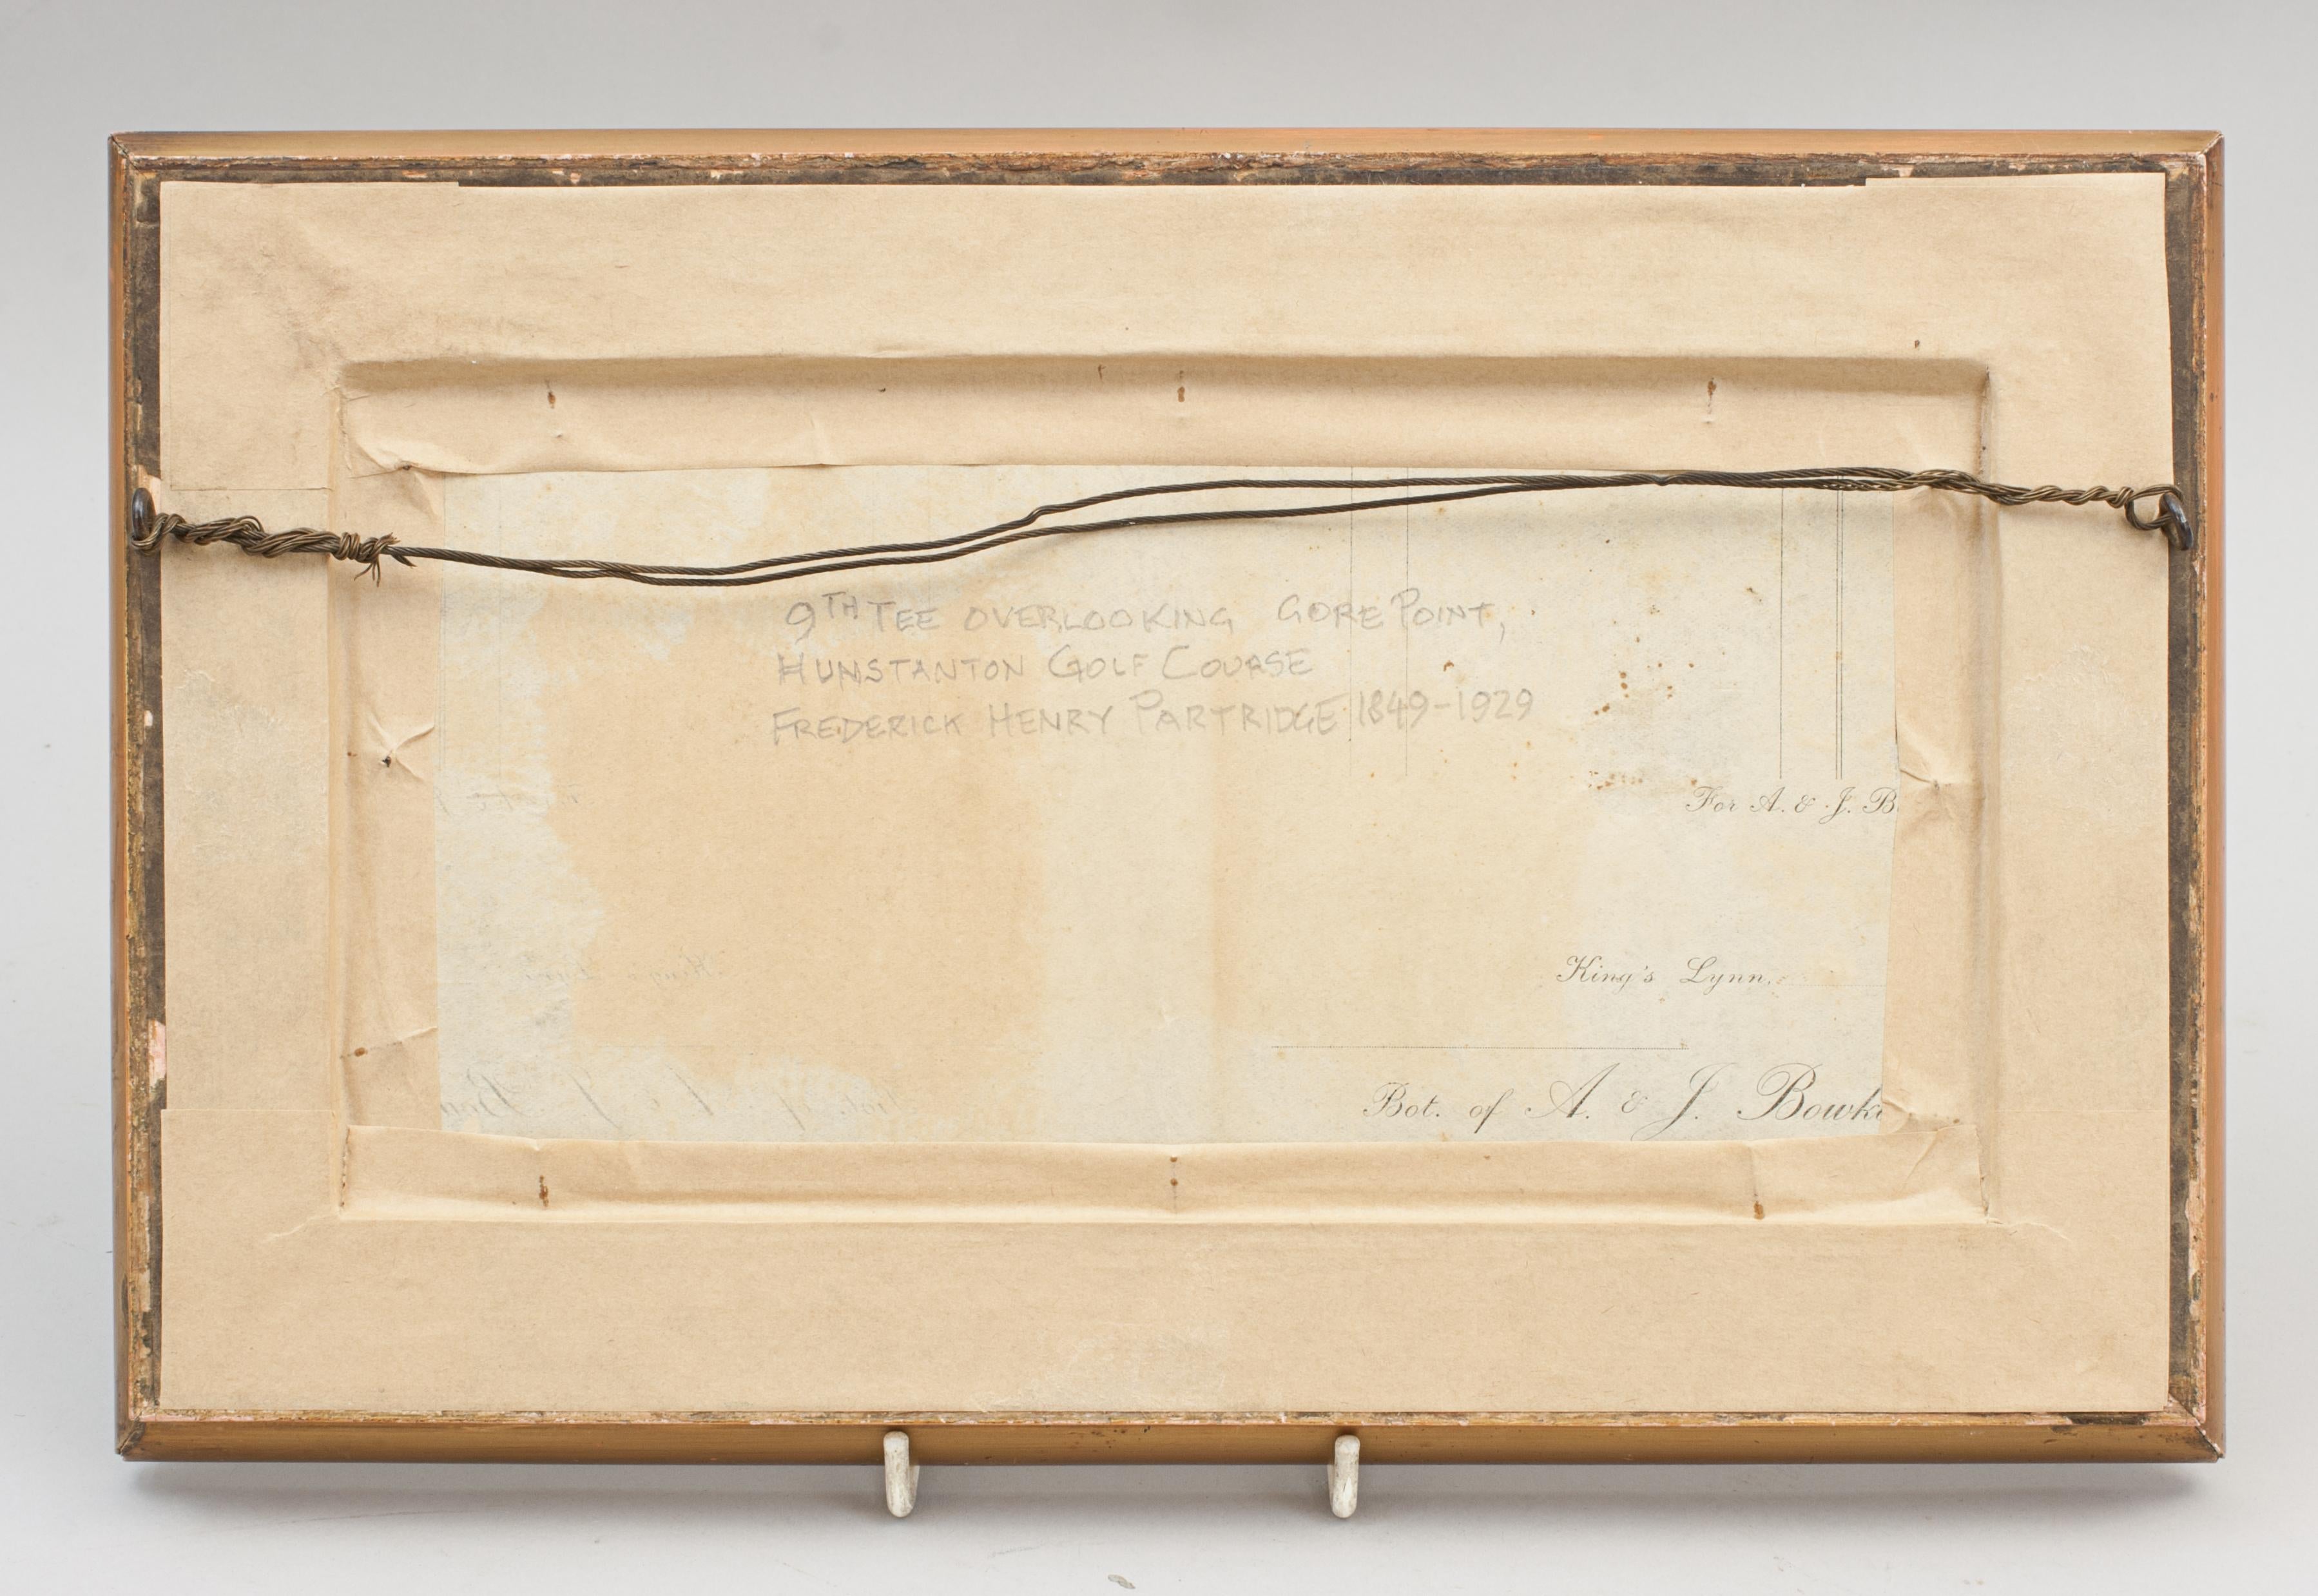 9TH TEE OVERLOOKING GORE POINT,
HUNSTANTON GOLF COURSE
FREDERICK HENRY PARTRIDGE 1849-1929
For A. & J. B
King's Lynn.
Bot. of A. & J. Bowk